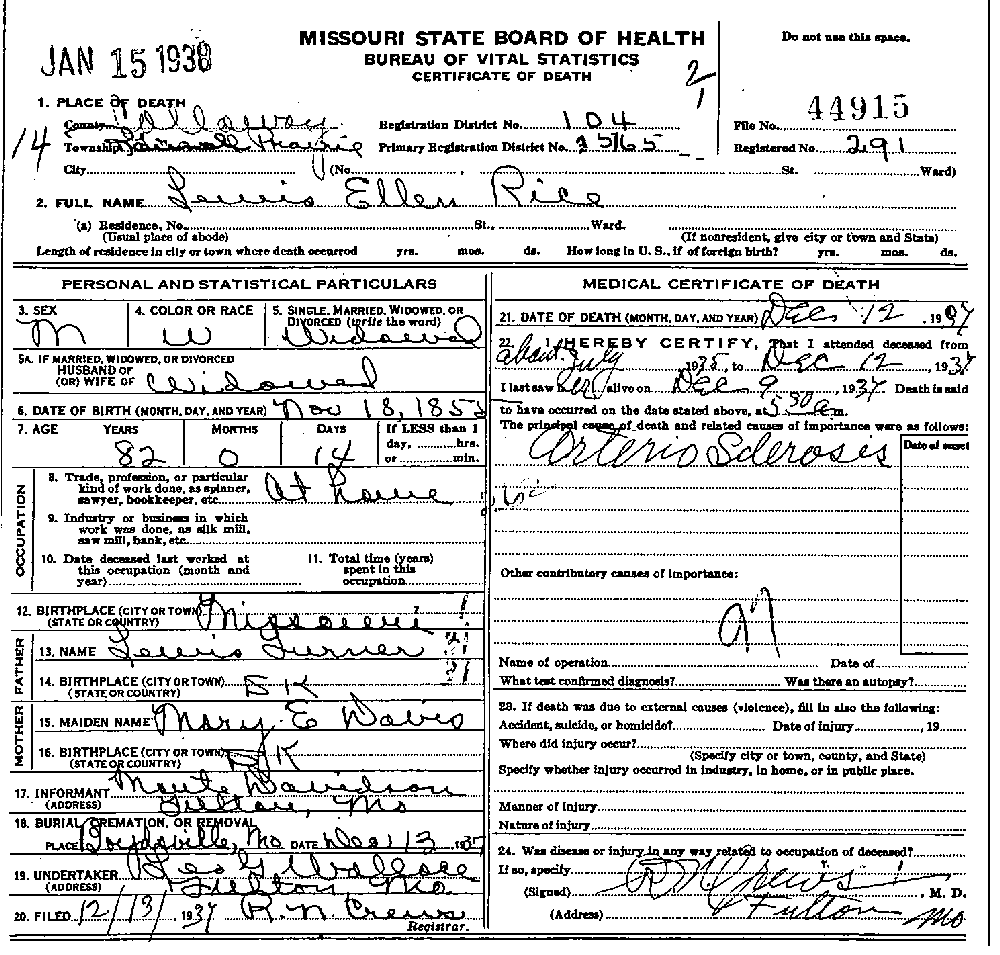 JAN 15 1938
MISSOURI STATE BOARD OF HEALTH
BUREAU OF VITAL STATISTICS
CERTIFICATE OF DEATH
Do not use this space.
2/1
44915
1. PLACE OF DEATH
County Callaway
Registration District No. 104
File No.
14
Township Prairie
Primary Registration District No.
Registered No. 291
City (No. , St. Ward)
2. FULL NAME Lewis Ellen Rice
(a) Residence, No. St., Ward.
(Usual place of abode) (If nonresident, give city or town and State)
Length of residence in city or town where death occurred yrs. mos. ds. How long in U. S., if of foreign birth? yrs. mos. ds.
PERSONAL AND STATISTICAL PARTICULARS
3. SEX
M
4. COLOR OR RACE
W
5. SINGLE, MARRIED, WIDOWED, OR
DIVORCED (write the word)
Widowed
5A. IF MARRIED, WIDOWED, OR DIVORCED
HUSBAND OF
(OR) WIFE OF Widowed
6. DATE OF BIRTH (MONTH, DAY, AND YEAR) Nov 18, 185
7. AGE YEARS MONTHS DAYS If LESS than 1
day, hrs.
or min.
82 0 14
OCCUPATION
8. Trade, profession, or particular
kind of work done, as spinner,
sawyer, bookkeeper, etc. At home
9. Industry or business in which
work was done, as silk mill,
saw mill, bank, etc.
10. Date deceased last worked at
this occupation (month and
year)
11. Total time (years)
spent in this
occupation
12. BIRTHPLACE (CITY OR TOWN)
(STATE OR COUNTRY) Missouri
FATHER
13. NAME Lewis Turner
14. BIRTHPLACE (CITY OR TOWN)
(STATE OR COUNTRY) D K
MOTHER
15. MAIDEN NAME Mary E Davis
16. BIRTHPLACE (CITY OR TOWN)
(STATE OR COUNTRY) D K
17. INFORMANT Monte Davidson
(ADDRESS) Fulton, Mo
18. BURIAL, CREMATION, OR REMOVAL
PLACE Boydsville, Mo DATE Dec 13 19
19. UNDERTAKER Wallace
(ADDRESS) Fulton, Mo.
20. FILED 12/13/ 1937 R. N. Crews
Registrar.
MEDICAL CERTIFICATE OF DEATH
21. DATE OF DEATH (MONTH, DAY, AND YEAR) Dec 12, 1937
22. I HEREBY CERTIFY, That I attended deceased from
about July 1935, to Dec 12, 1937
I last saw her alive on Dec 9, 1937 Death is said
to have occurred on the date stated above, at 5 30 a m.
The principal cause of death and related causes of importance were as follows:
Date of onset
Arterio Sclerosis
Other contributory causes of importance:
Name of operation Date of
What test confirmed diagnosis? Was there an autopsy?
23. If death was due to external causes (violence), fill in also the following:
Accident, suicide, or homicide? Date of injury , 19
Where did injury occur?
(Specify city or town, county, and State)
Specify whether injury occurred in industry, in home, or in public place.
Manner of injury
Nature of injury
24. Was disease or injury in any way related to occupation of deceased?
If so, specify
(Signed) R N Crews , M. D.
(Address) Fulton Mo